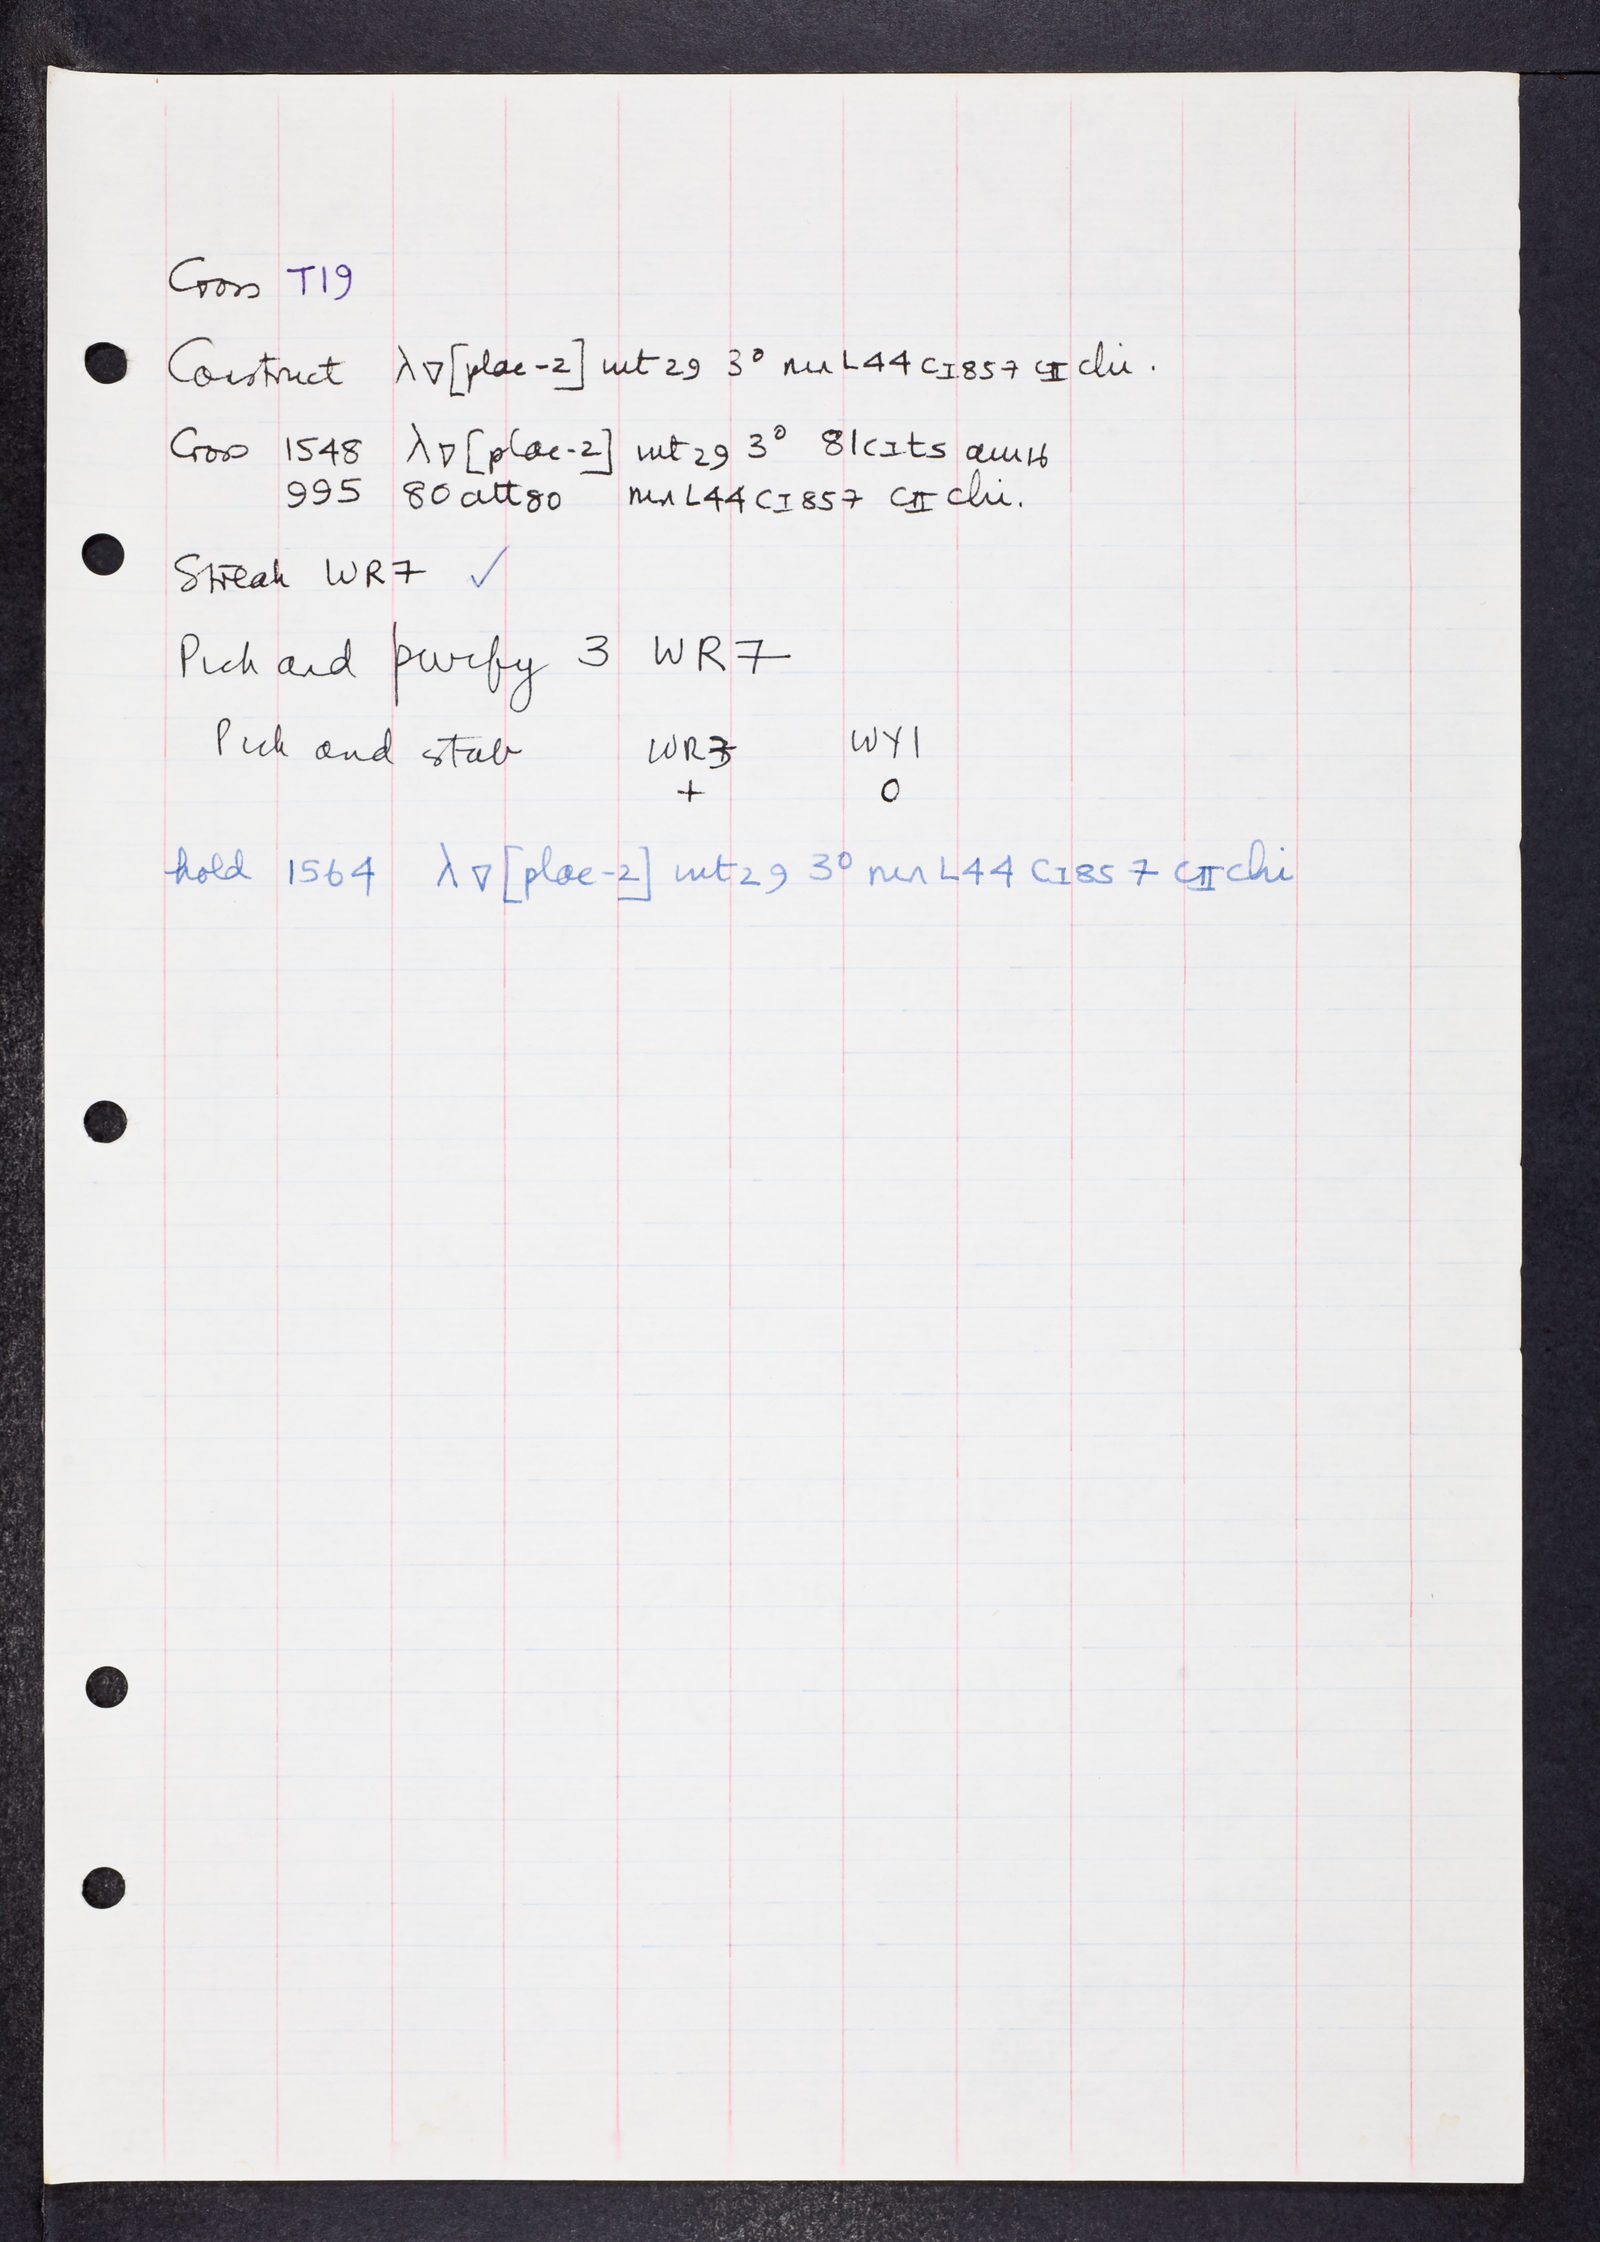 Cross T19
Construct λ▽[plac-2] int29 3° nin L44 cI857 cII chi.
Cross 1548 λ▽[plac-2] int29 3° 81cIts am16
995 80att80 nin L44 cI857 cII chi.
Streak WR7 ✓
Pick and purify 3 WR7
Pick and stab WR3 WY1
+ 0
hold 1564 λ▽[plac-2] int29 3° nin L44 cI857 cII chi